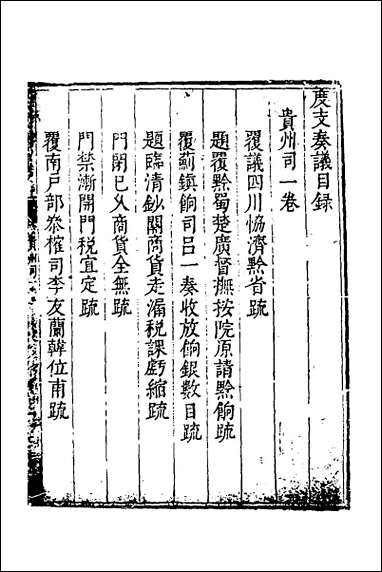 度支奏議目録
貴州司一卷
覆議四川恊濟黔省疏
題覆黔蜀楚廣督撫按院原請黔餉疏
覆薊鎮餉司呂一奏收放餉銀數目疏
題臨清鈔關商貨走漏税課虧縮疏
門閉已久商貨全無疏
門禁漸開門税宜定疏
覆南戶部叅榷司李友蘭韓位南疏